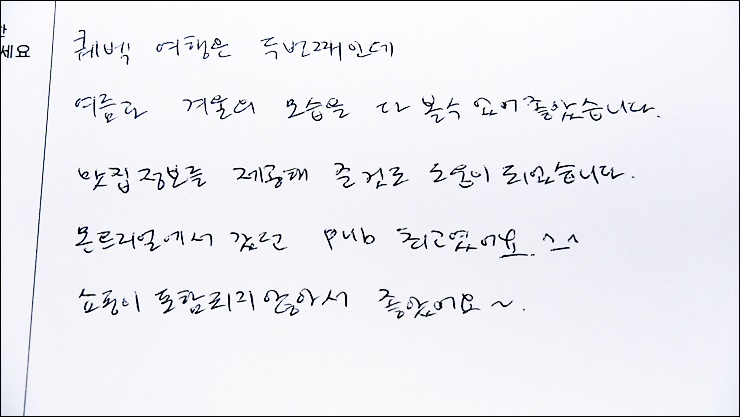 한
세요
퀘벡 여행은 두번째인데
여름과 겨울의 모습을 다 볼수 있어 좋았습니다.
맛집 정보를 제공해 준 것도 도움이 되었습니다.
몬트리얼에서 갔던 pub 최고였어요. ^^
쇼핑이 포함되지 않아서 좋았어요~.